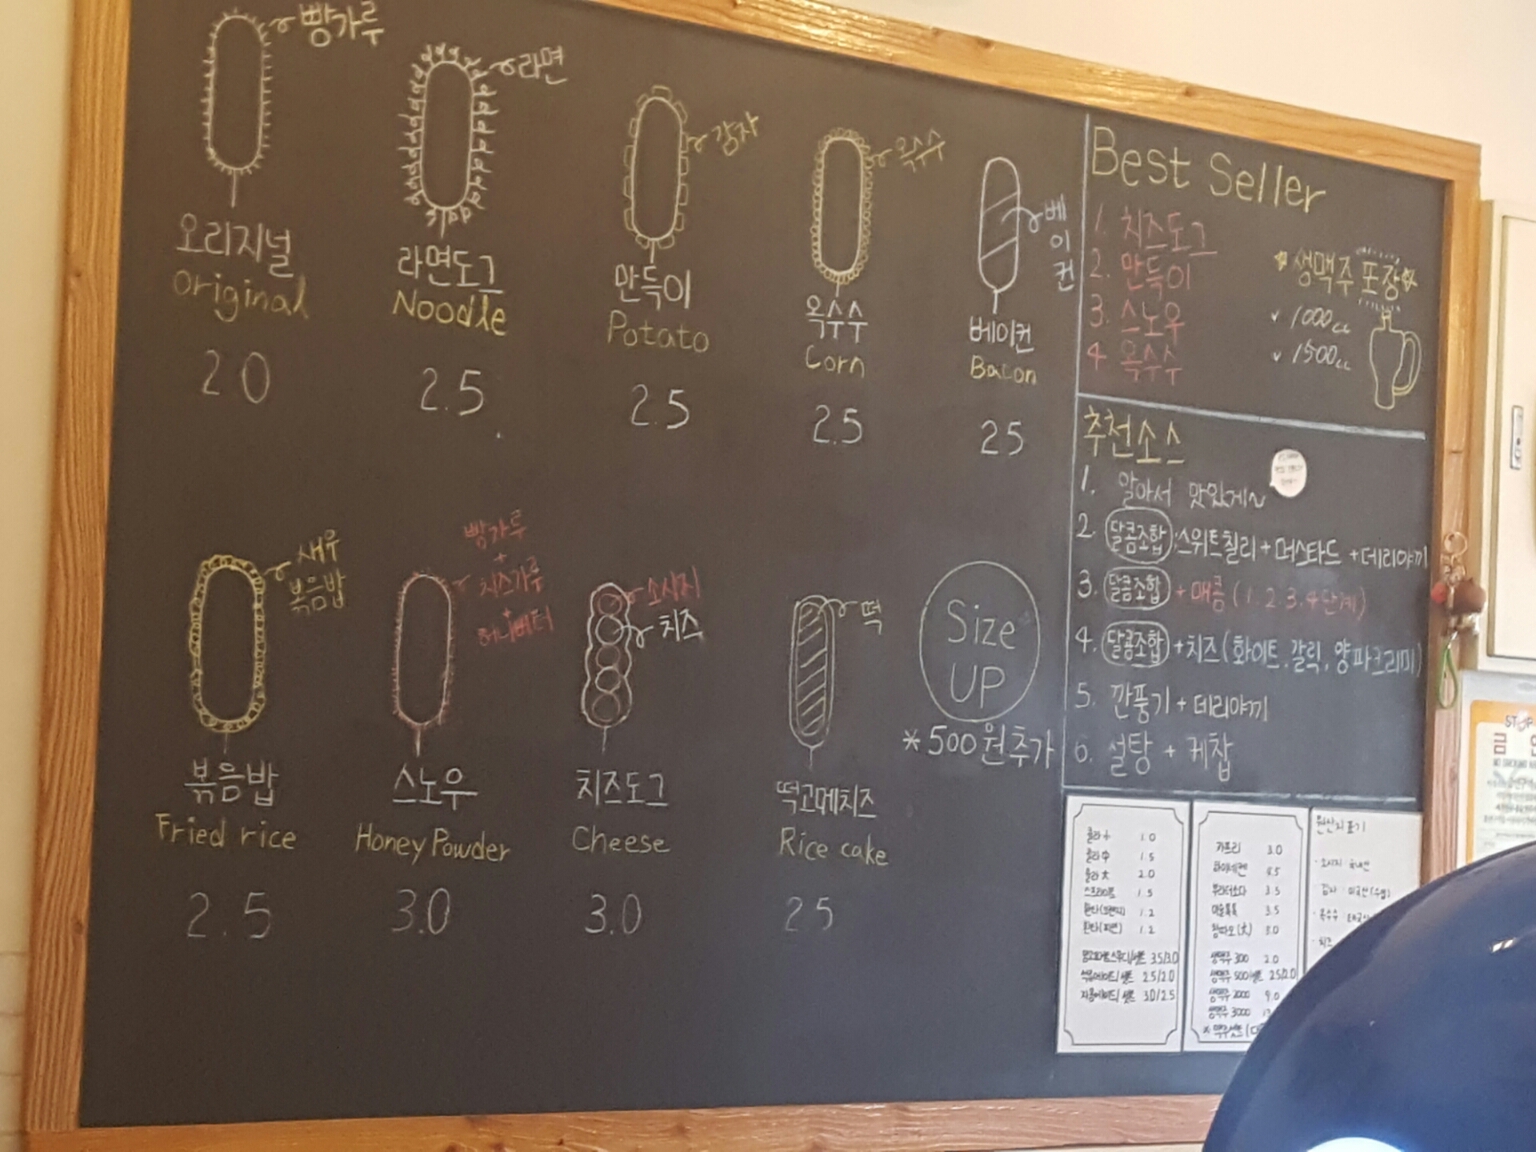 빵가루
오리지널
Original
2.0
라면
라면도그
Noodle
2.5
감자
만득이
Potato
2.5
옥수수
옥수수
Corn
2.5
베이컨
베이컨
Bacon
25
새우
볶음밥
볶음밥
Fried rice
2.5
빵가루
+
치즈가루
+
허니버터
스노우
Honey Powder
3.0
소시지
치즈
치즈도그
Cheese
3.0
떡
떡고메치즈
Rice cake
25
Size
UP
*500원추가
Best Seller
1. 치즈도그
2. 만득이
3. 스노우
4. 옥수수
생맥주 포장
1000cc
1500cc
추천소스
1. 알아서 맛있게~
2. 달콤조합 스위트칠리+머스타드+데리야끼
3. 달콤조합 +매콤(1.2.3.4단계)
4. 달콤조합 +치즈(화이트.갈릭.양파크리미)
5. 깐풍기+데리야끼
6. 설탕 + 케찹
콜라 小 1.0
콜라 中 1.5
콜라 大 2.0
스프라이트 1.5
환타 1.2
환타 1.2
3.5/3.0
2.5/2.0
3.0/2.5
카프리 3.0
하이네켄 4.5
3.5
3.5
칭따오(大)
생맥주 300 2.0
생맥주 500 2.5/2.0
생맥주 2000 9.0
생맥주 3000
원산지표기
금